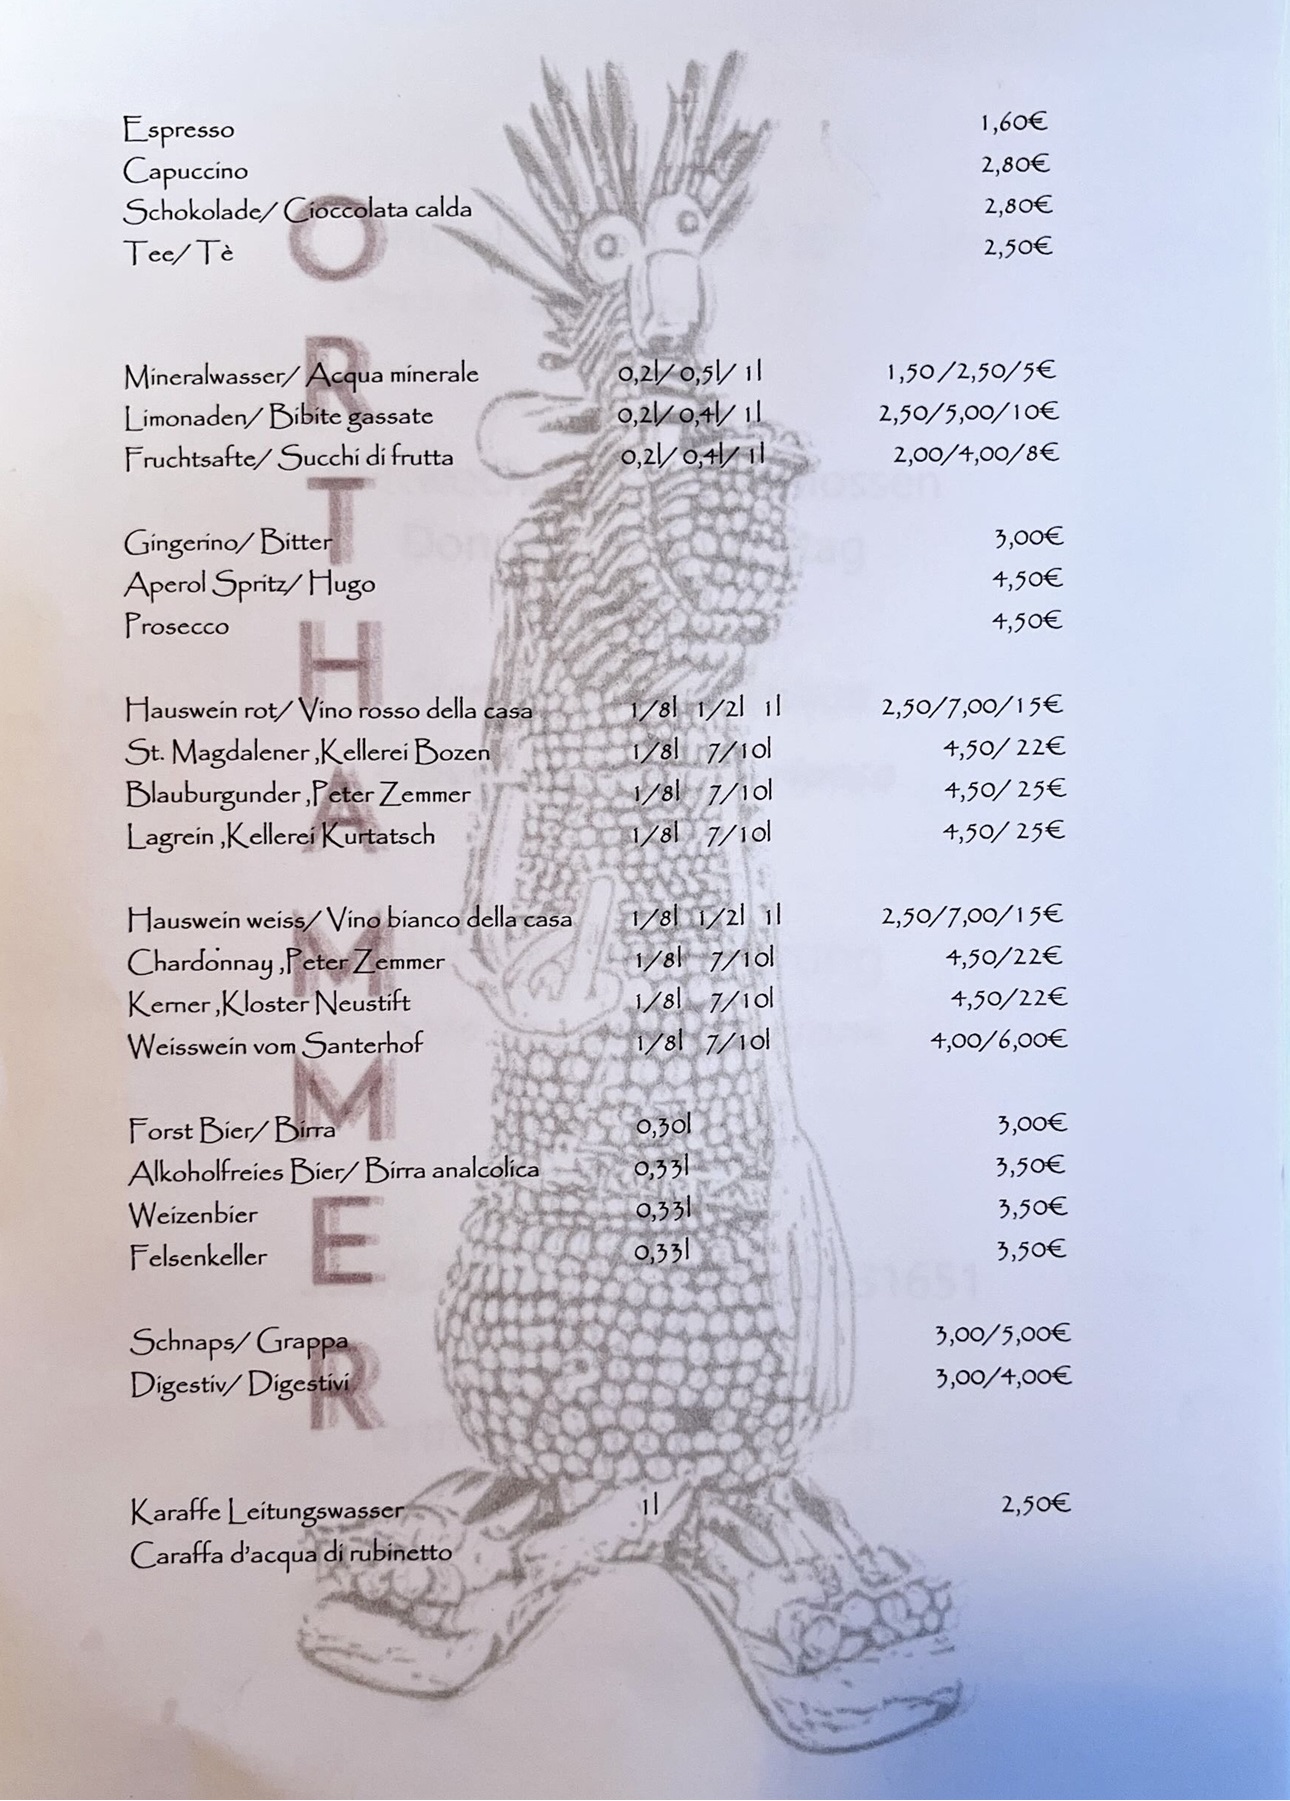 Espresso 1,60€
Capuccino 2,80€
Schokolade/ Cioccolata calda 2,80€
Tee/ Tè 2,50€
Mineralwasser/ Acqua minerale 0,2l/ 0,5l/ 1l 1,50/2,50/5€
Limonaden/ Bibite gassate 0,2l/ 0,4l/ 1l 2,50/5,00/10€
Fruchtsafte/ Succhi di frutta 0,2l/ 0,4l/ 1l 2,00/4,00/8€
Gingerino/ Bitter 3,00€
Aperol Spritz/ Hugo 4,50€
Prosecco 4,50€
Hauswein rot/ Vino rosso della casa 1/8l 1/2l 1l 2,50/7,00/15€
St. Magdalener ,Kellerei Bozen 1/8l 7/10l 4,50/ 22€
Blauburgunder ,Peter Zemmer 1/8l 7/10l 4,50/ 25€
Lagrein ,Kellerei Kurtatsch 1/8l 7/10l 4,50/ 25€
Hauswein weiss/ Vino bianco della casa 1/8l 1/2l 1l 2,50/7,00/15€
Chardonnay ,Peter Zemmer 1/8l 7/10l 4,50/22€
Kerner ,Kloster Neustift 1/8l 7/10l 4,50/22€
Weisswein vom Santerhof 1/8l 7/10l 4,00/6,00€
Forst Bier/ Birra 0,30l 3,00€
Alkoholfreies Bier/ Birra analcolica 0,33l 3,50€
Weizenbier 0,33l 3,50€
Felsenkeller 0,33l 3,50€
Schnaps/ Grappa 3,00/5,00€
Digestiv/ Digestivi 3,00/4,00€
Karaffe Leitungswasser 1l 2,50€
Caraffa d'acqua di rubinetto
ORTHAMMER